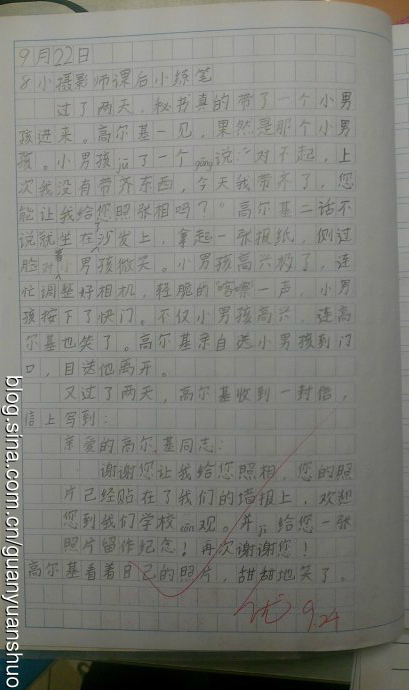 9月22日
8小摄影师课后小练笔
过了两天，秘书真的带了一个小男
孩进来。高尔基一见，果然是那个小男
孩。小男孩jū了一个gōng说："对不起，上
次我没有带齐东西，今天我带齐了，您
能让我给您照张相吗？"高尔基二话不
说就坐在沙发上，拿起一张报纸，侧过
脸对着小男孩微笑。小男孩高兴极了，连
忙调整好相机，轻脆的喀嚓一声，小男
孩按下了快门。不仅小男孩高兴，连高
尔基也笑了。高尔基亲自送小男孩到门
口，目送他离开。
又过了两天，高尔基收到一封信，
信上写到：
亲爱的高尔基同志：
谢谢您让我给您照相，您的照
片已经贴在了我们的墙报上，欢迎
您到我们学校cān观。并jì给您一张
照片留作纪念！再次谢谢您！
高尔基看着自己的照片，甜甜地笑了。
优 9.24
blog.sina.com.cn/guanyuanshuo